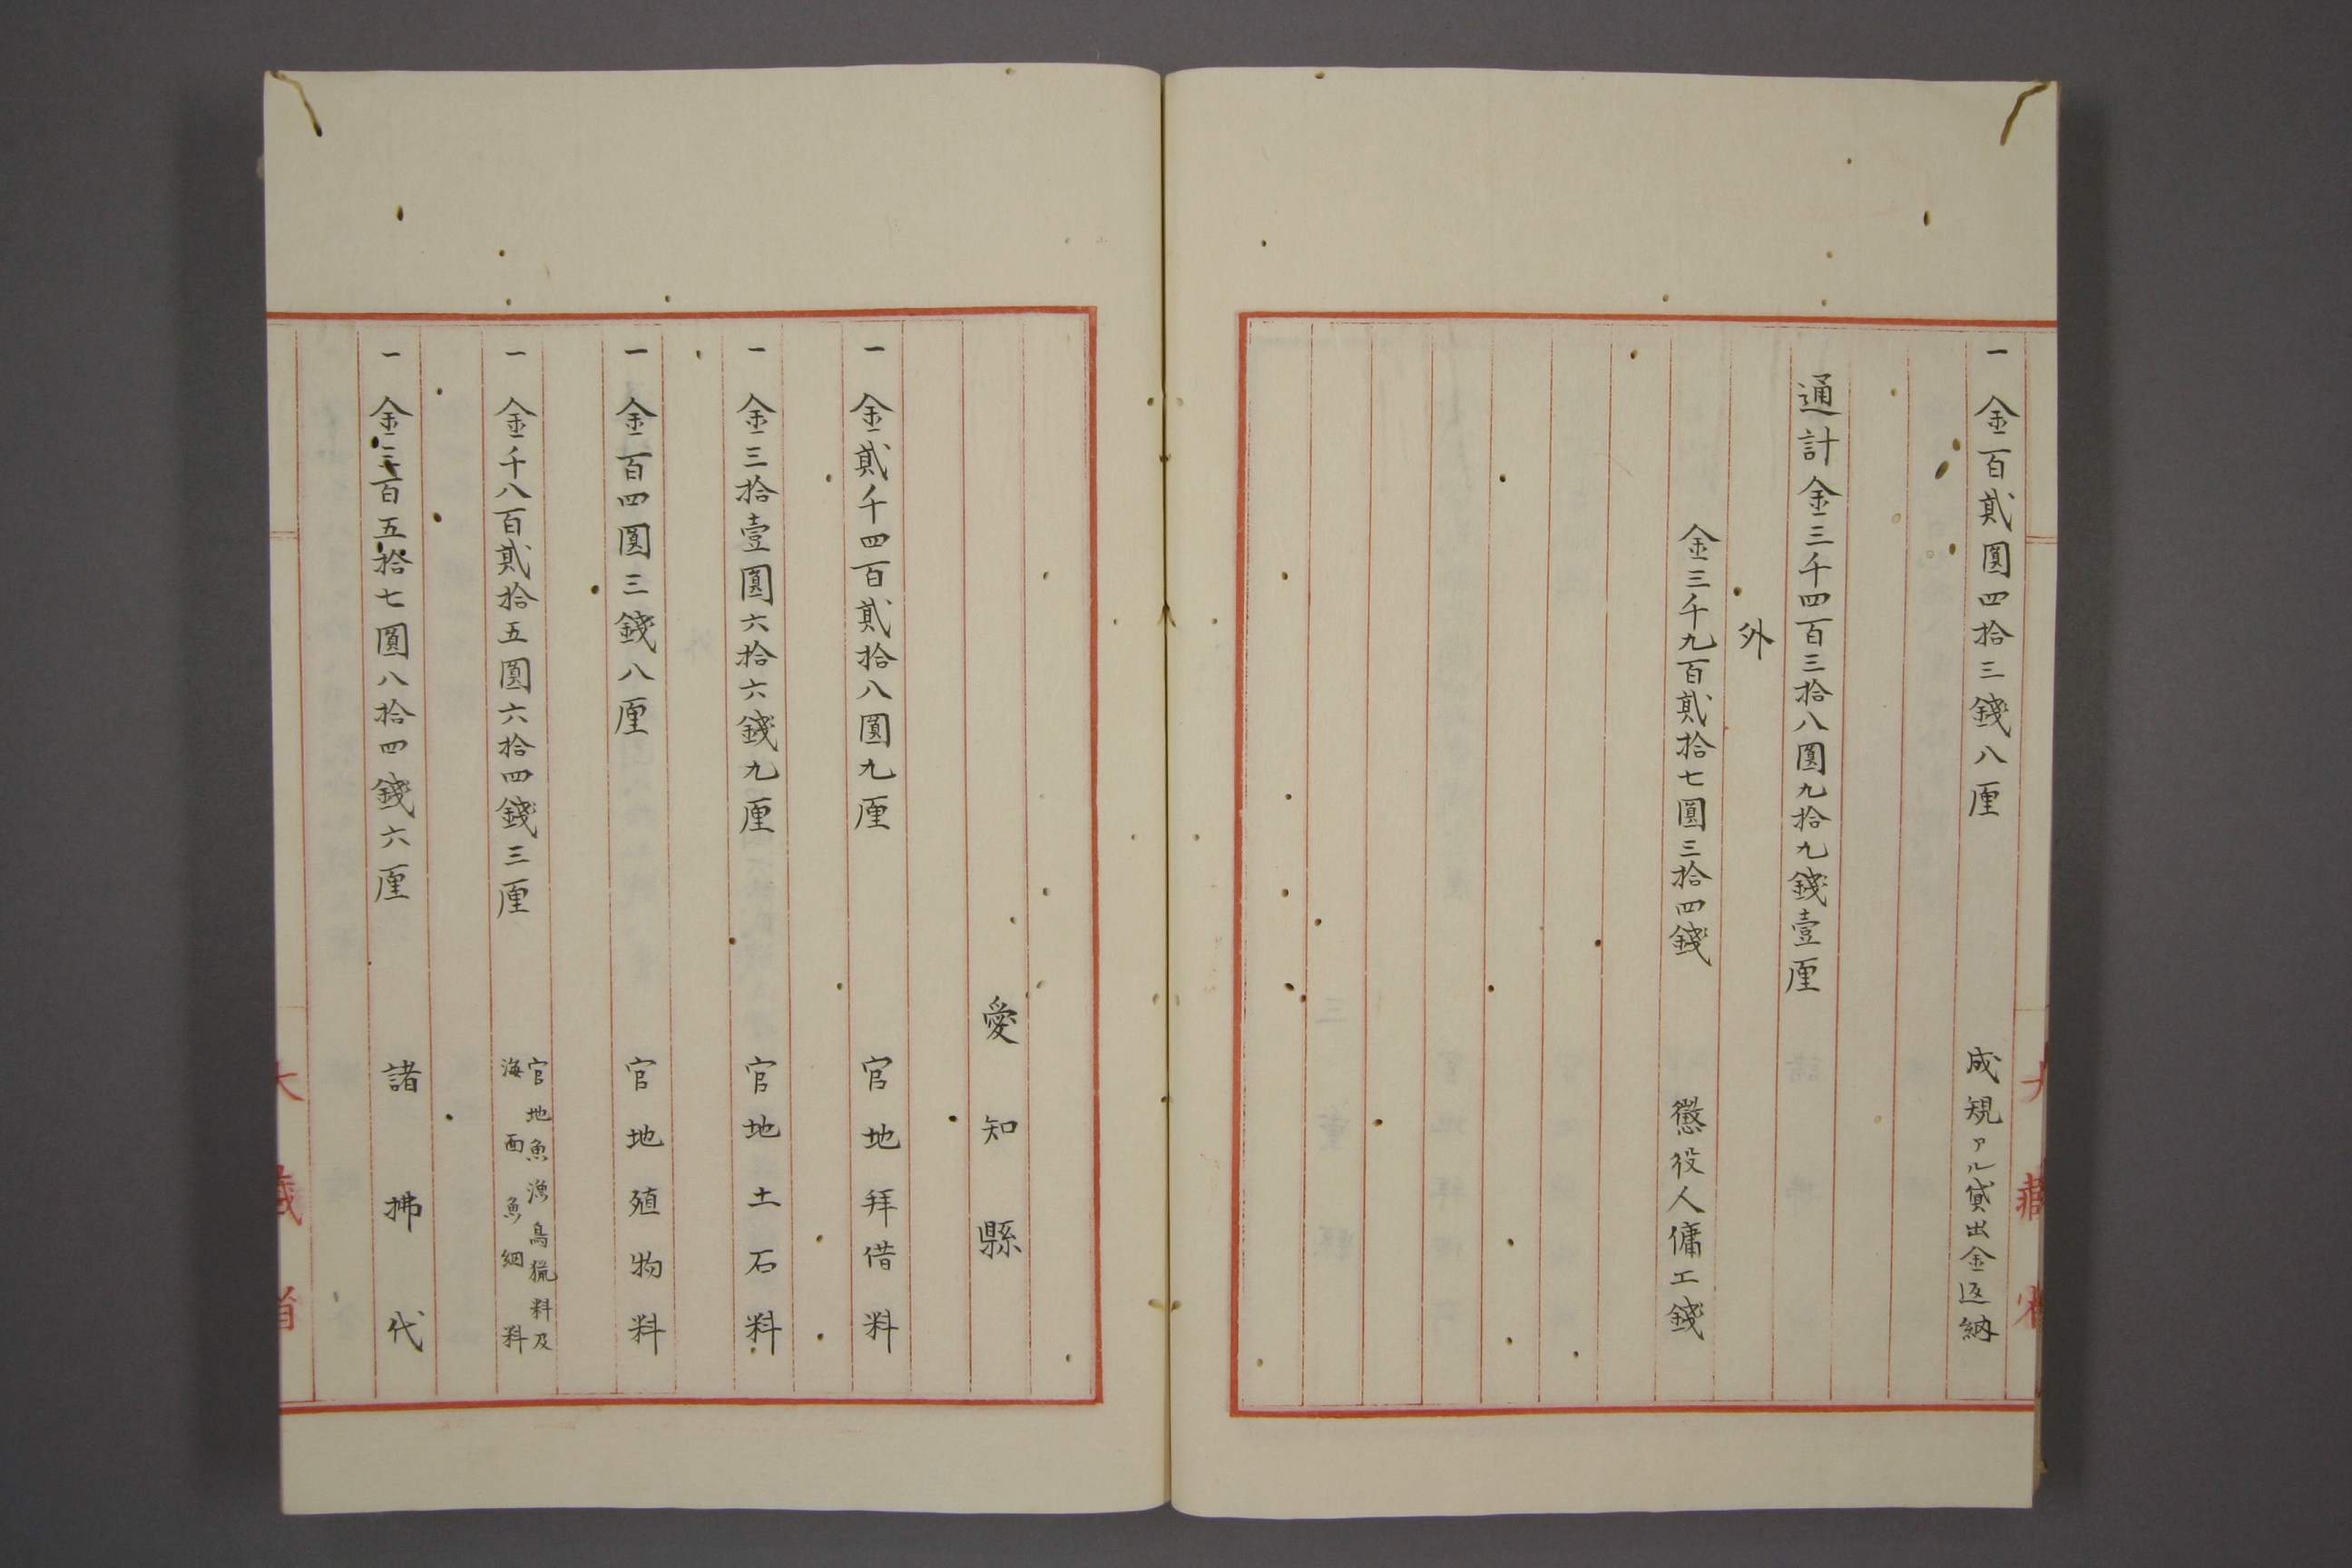 一 金百貳圓四拾三錢八厘 成規アル貸出金返納
通計金三千四百三拾八圓九拾九錢壹厘
外
金三千九百貳拾七圓三拾四錢 懲役人傭工錢
愛知縣
一 金貳千四百貳拾八圓九厘 官地拜借料
一 金三拾壹圓六拾六錢九厘 官地土石料
一 金百四圓三錢八厘 官地殖物料
一 金千八百貳拾五圓六拾四錢三厘 官地魚漁鳥猟料及
海面魚網料
一 金三百五拾七圓八拾四錢六厘 諸拂代
大藏省